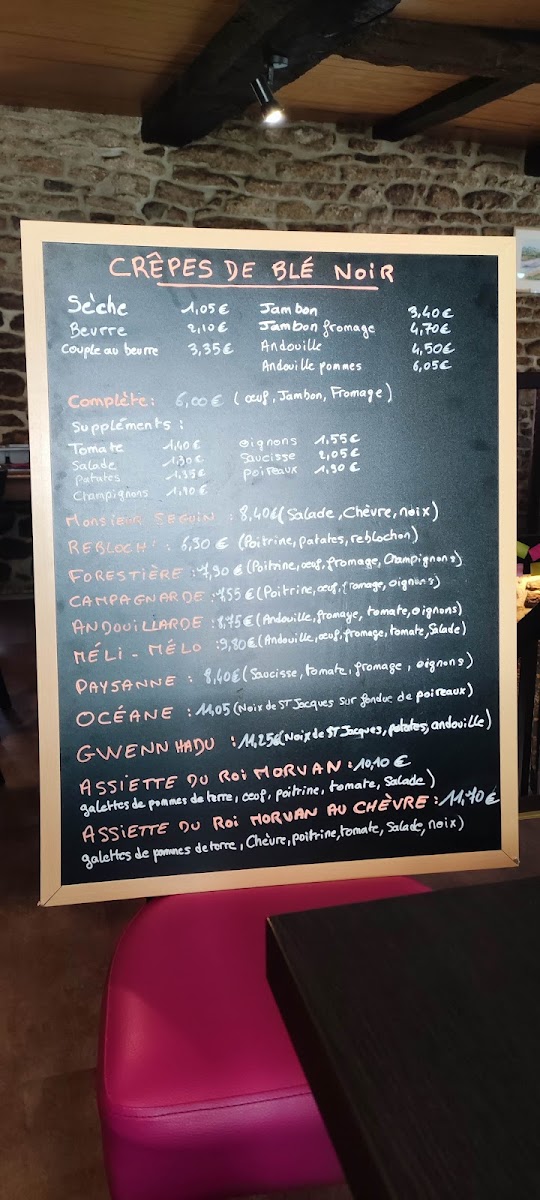 CRÊPES DE BLÉ NOIR
Sèche 1,05€ Jambon 3,40€
Beurre 2,10€ Jambon fromage 4,70€
Couple au beurre 3,35€ Andouille 4,50€
Andouille pommes 6,05€
Complète: 6,00€ (œuf, Jambon, Fromage)
Suppléments:
Tomate 1,40€ oignons 1,55€
Salade 1,30€ saucisse 2,05€
Patates 1,35€ poireaux 1,90€
Champignons 1,90€
MONSIEUR SEGUIN : 8,40€ (Salade, Chèvre, noix)
REBLOCH' : 6,90€ (Poitrine, patates, reblochon)
FORESTIÈRE : 7,90€ (Poitrine, œuf, fromage, Champignons)
CAMPAGNARDE : 7,55€ (Poitrine, œuf, fromage, oignons)
ANDOUILLARDE : 8,75€ (Andouille, fromage, tomate, oignons)
MÉLI-MÉLO : 9,80€ (Andouille, œuf, fromage, tomate, Salade)
PAYSANNE : 8,40€ (Saucisse, tomate, fromage, oignons)
OCÉANE : 11,05 (Noix de ST Jacques sur fondue de poireaux)
GWENN HADU : 11,25€ (Noix de ST Jacques, patates, andouille)
ASSIETTE DU ROI MORVAN : 10,10€
galettes de pommes de terre, œuf, poitrine, tomate, Salade)
ASSIETTE DU ROI MORVAN AU CHÈVRE : 11,70€
galettes de pommes de terre, Chèvre, poitrine, tomate, Salade, noix)